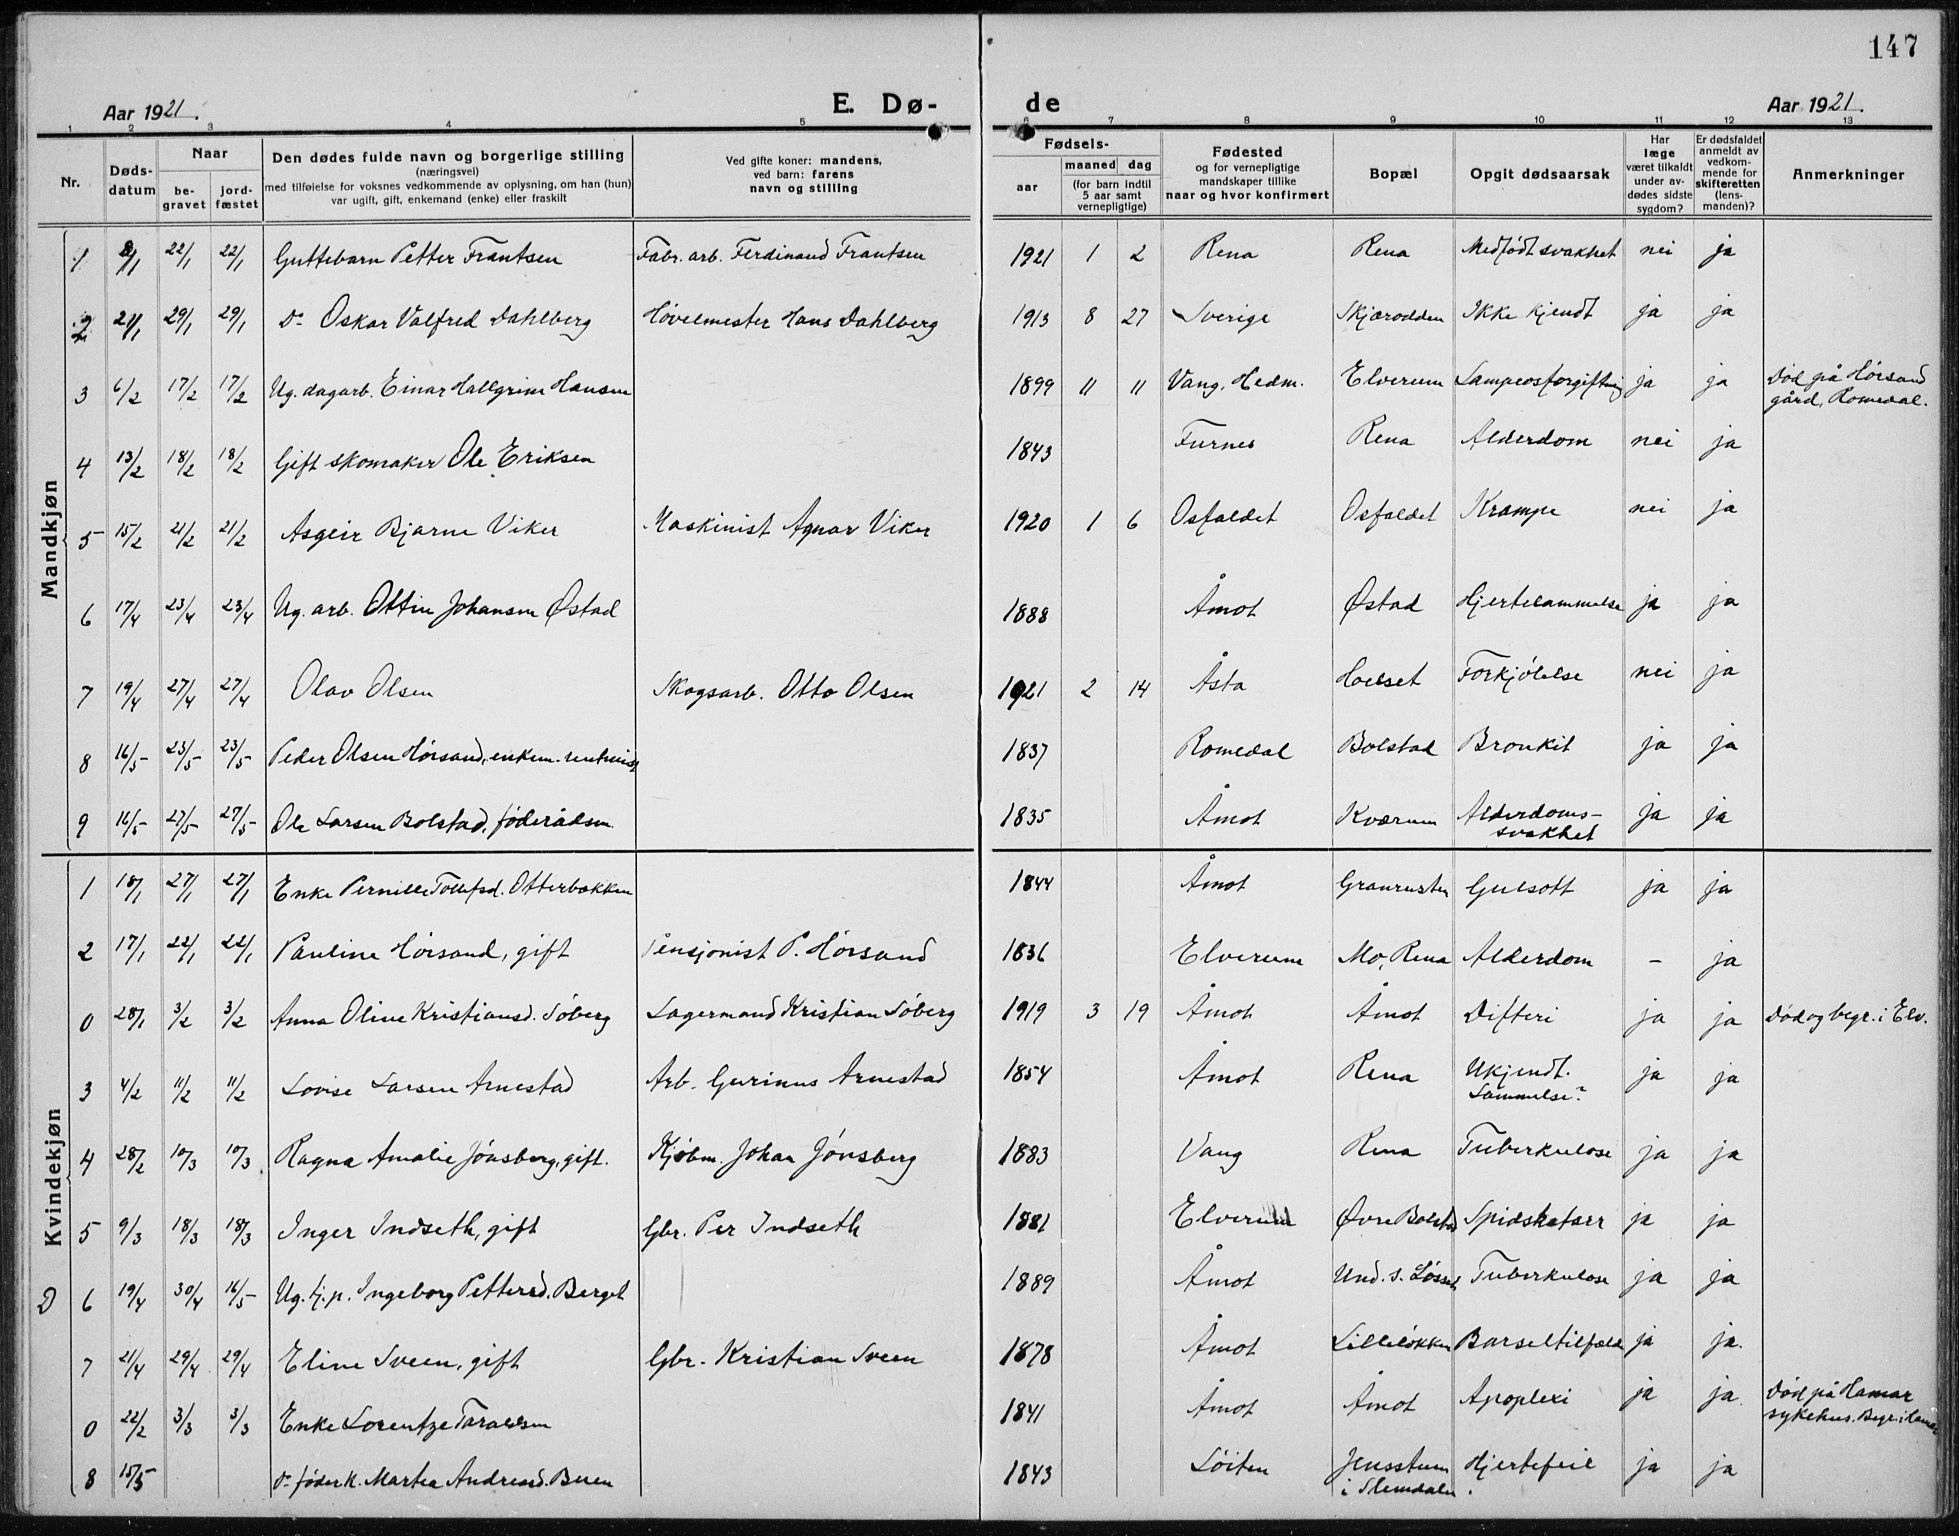 147
Aar 1921. E. Dø- de Aar 1921.
1 2 3 4 5 6 7 8 9 10 11 12 13
Nr. Døds-datum Naar be-gravet jord-fæstet Den dødes fulde navn og borgerlige stilling (næringsvei) med tilføielse for voksnes vedkommende av oplysning, om han (hun) var ugift, gift, enkemand (enke) eller fraskilt Ved gifte koner: mandens, ved barn: farens navn og stilling Fødsels- aar maaned dag (for barn indtil 5 aar samt vernepligtige) Fødested og for vernepligtige mandskaper tillike naar og hvor konfirmert Bopæl Opgit dødsaarsak Har læge været tilkaldt under av-dødes sidste sygdom? Er dødsfaldet anmeldt av vedkom-mende for skifteretten (lens-manden)? Anmerkninger
Mandkjøn
1 8/1 22/1 22/1 Guttebarn Petter Frantsen Fabr. arb. Ferdinand Frantsen 1921 1 2 Rena Rena Medfødt svakhet nei ja
2 21/1 29/1 29/1 Do Oskar Valfred Dahlberg Høvelmester Hans Dahlberg 1913 8 27 Sverige Skjærodden Ikke kjendt ja ja
3 6/2 17/2 17/2 Ug. dagarb. Einar Hallgrim Hansen 1899 11 11 Vang, Hedm. Elverum Lampeosforgiftnig ja ja Død på Hørsand
gård, Romedal.
4 13/2 18/2 18/2 Gift skomaker Ole Eriksen 1843 Furnes Rena Alderdom nei ja
5 15/2 21/2 21/2 Asgeir Bjarne Viker Maskinist Agnar Viker 1920 1 6 Osfaldet Osfaldet Krampe nei ja
6 17/4 23/4 23/4 Ug. arb. Ottin Johansen Østad 1888 Åmot Østad Hjertelammelse ja ja
7 19/4 27/4 27/4 Olav Olsen Skogsarb. Otto Olsen 1921 2 14 Åsta Hoelset Forkjølelse nei ja
8 16/5 23/5 23/5 Peder Olsen Hørsand, enkem. rentenist 1837 Romedal Bolstad Bronkit ja ja
9 16/5 27/5 27/5 Ole Larsen Bolstad, føderådsm. 1835 Åmot Kværum Alderdoms-
svakhet ja ja
Kvindekjøn
1 18/1 27/1 27/1 Enke Pernille Tollefsd. Otterbakken 1844 Åmot Granrusten Gulsott ja ja
2 17/1 22/1 22/1 Pauline Hørsand, gift Pensjonist P. Hørsand 1836 Elverum Mo, Rena Alderdom - ja
0 28/1 3/2 3/2 Anna Oline Kristiansd. Søberg Lagermand Kristian Søberg 1919 3 19 Åmot Åmot Difteri ja ja Død og begr. i Elv.
3 4/2 11/2 11/2 Lovise Larsen Arnestad Arb. Gurinus Arnestad 1854 Åmot Rena Ukjendt.
Lammelse? ja ja
4 28/2 10/3 10/3 Ragna Amalie Jønsberg, gift. Kjøbm. Johan Jønsberg 1883 Vang Rena Tuberkulose ja ja
5 9/3 18/3 18/3 Inger Indseth, gift Gbr. Per Indseth 1881 Elverum Øvre Bolstad Spidskatarr ja ja
D 6 19/4 30/4 16/5 Ug. tj. p. Ingeborg Pettersd. Berget 1889 Åmot Und. s. Løsset Tuberkulose ja ja
7 21/4 29/4 29/4 Eline Sveen, gift Gbr. Kristian Sveen 1878 Åmot Lilleløkken Barseltilfælde ja ja.
0 22/2 3/3 3/3 Enke Lorentze 1841 Åmot Åmot Apoplexi ja ja Død på Hamar
sykehus. Begr. i Hamar
8 15/5 Do føderk. Martea Andreasd. Buen 1843 Løiten Jensstuen
i Slemdalen Hjertefeil. ja ja